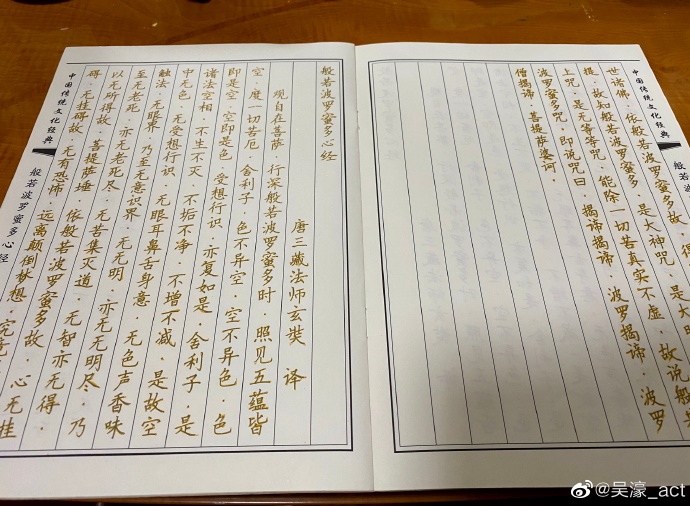 般若波罗蜜多心经
唐三藏法师玄奘 译
观自在菩萨·行深般若波罗蜜多时·照见五蕴皆
空·度一切苦厄·舍利子·色不异空·空不异色·色
即是空·空即是色·受想行识·亦复如是·舍利子·是
诸法空相·不生不灭·不垢不净·不增不减·是故空
中无色·无受想行识·无眼耳鼻舌身意·无色声香味
触法·无眼界·乃至无意识界·无无明·亦无无明尽·乃
至无老死·亦无老死尽·无苦集灭道·无智亦无得·
以无所得故·菩提萨埵·依般若波罗蜜多故·心无挂
碍·无挂碍故·无有恐怖·远离颠倒梦想·究
中国传统文化经典
般若波罗蜜多心经
中国传统文化经典
般若波罗蜜多心
世诸佛·依般若波罗蜜多故·得
提·故知般若波罗蜜多·是大神咒·是大明
上咒·是无等等咒·能除一切苦真实不虚·故说般若
波罗蜜多咒·即说咒曰·揭谛揭谛·波罗揭谛·波罗
僧揭谛·菩提萨婆诃·
@吴濠_act